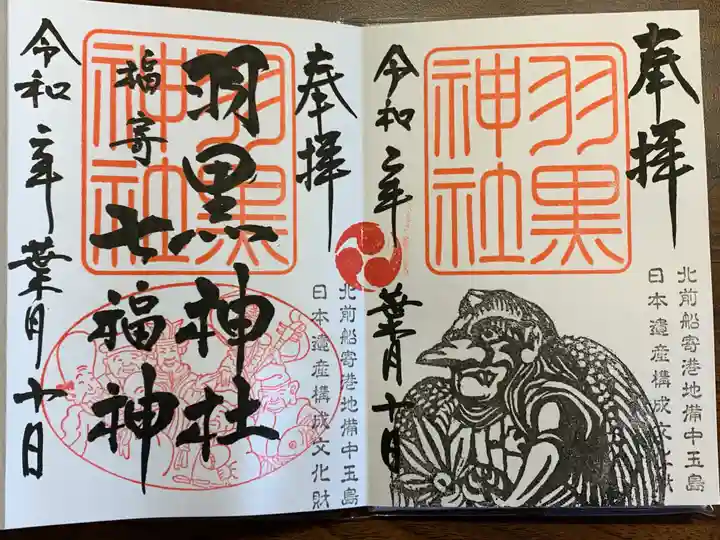 奉拝
羽黒神社
北前船寄港地備中玉島
日本遺産構成文化財
令和二年
葉月十日
奉拝
羽黒神社
北前船寄港地備中玉島
日本遺産構成文化財
羽黒神社
福寄
七福神
令和二年葉月十日